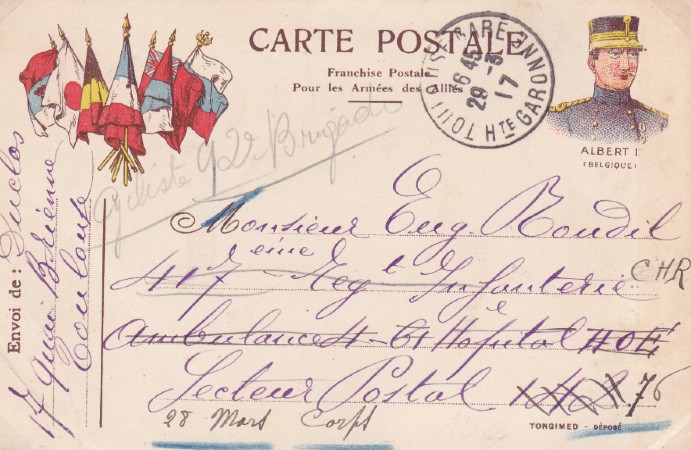 CARTE POSTALE
Franchise Postale
Pour les Armées des Alliés
TOULOUSE-GARE-BONNE
Hte GARONNE
6 45
29 -3
17
ALBERT I
(BELGIQUE)
Envoi de : Duclos
17 Quai Brienne
Toulouse
Cycliste 92e Brigade
Monsieur Eug. Roudil
417eme Regt Infanterie CHR
Ambulance 4-61 Hôpital HOE
Secteur Postal 76
28 Mars Corps
TONGIMED - DÉPOSÉ